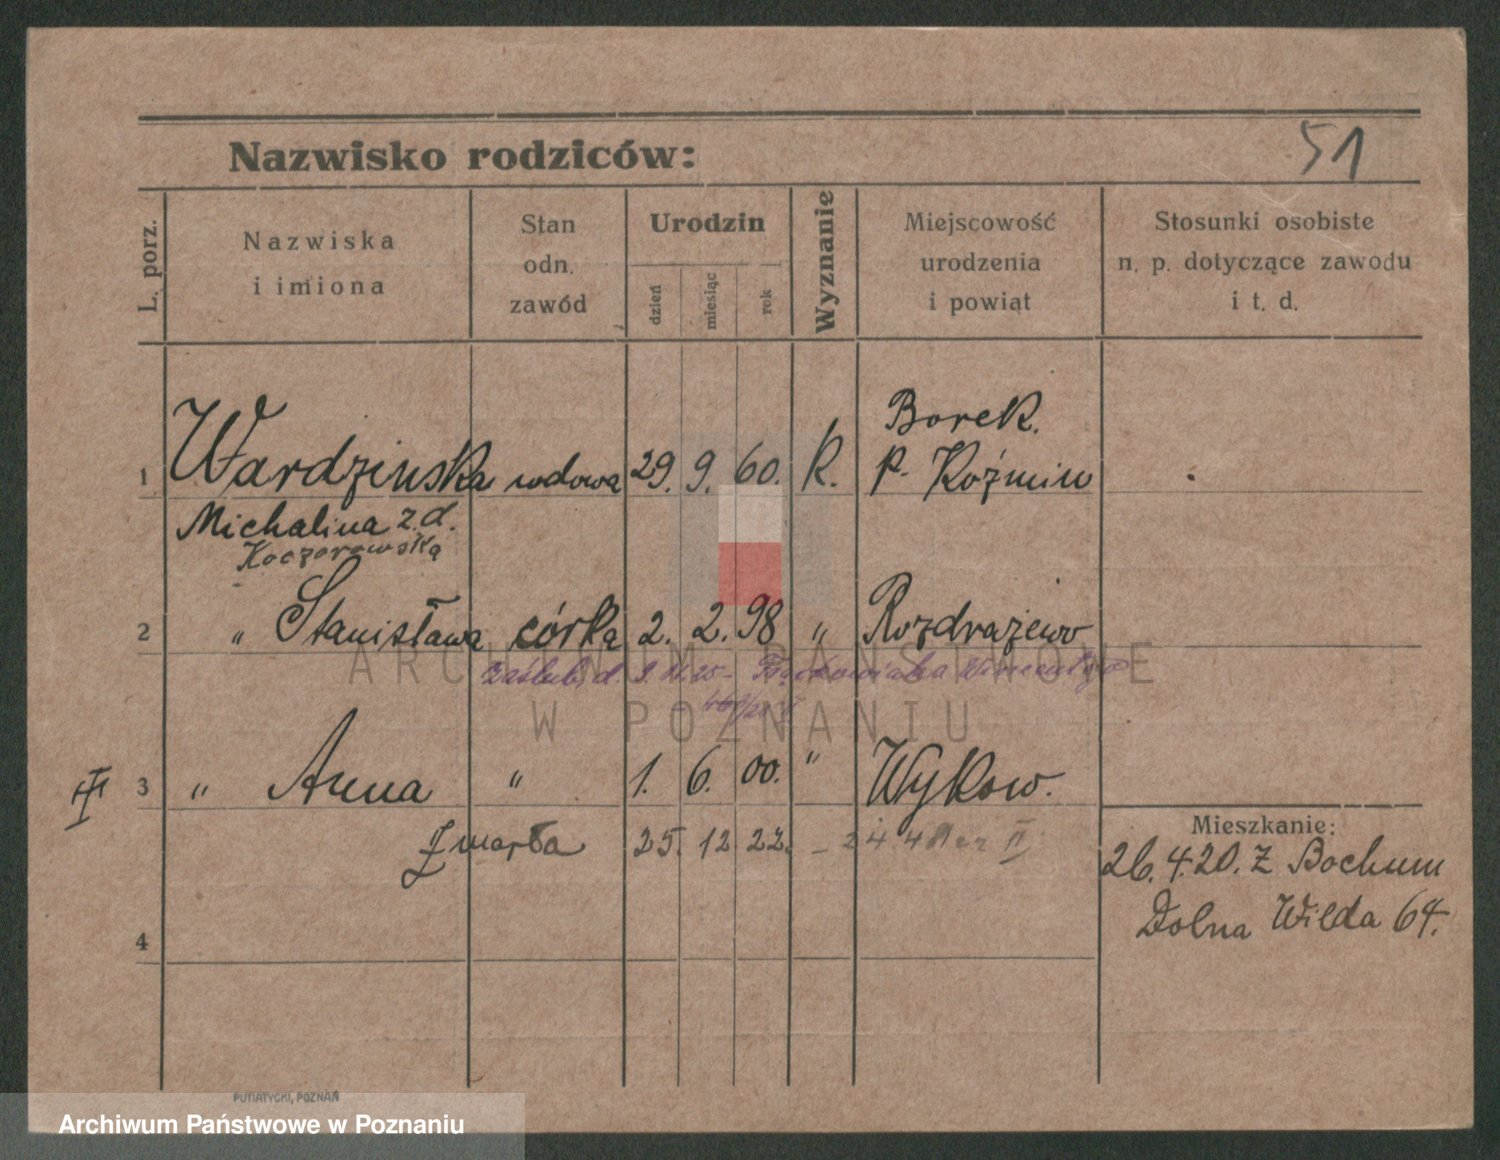 51
Nazwisko rodziców:
L. porz.
Nazwiska
i imiona
Stan
odn.
zawód
Urodzin
dzień
miesiąc
rok
Wyznanie
Miejscowość
urodzenia
i powiat
Stosunki osobiste
n. p. dotyczące zawodu
i t. d.
1 Wardzinska wdowa 29. 9. 60. k. Borek.
p. Koźmin
Michalina z.d.
Koczorowska
2 " Stanisława córka 2. 2. 98 " Rozdrażewo
zaślub. d.
ARCHIWUM PAŃSTWOWE
W POZNANIU
III 3 " Anna " 1. 6. 00. " Wykow.
Zmarła 25. 12 22.
4
Mieszkanie:
26. 4. 20. z Bochum
Dolna Wilda 64.
PUTIATYCKI, POZNAŃ
Archiwum Państwowe w Poznaniu